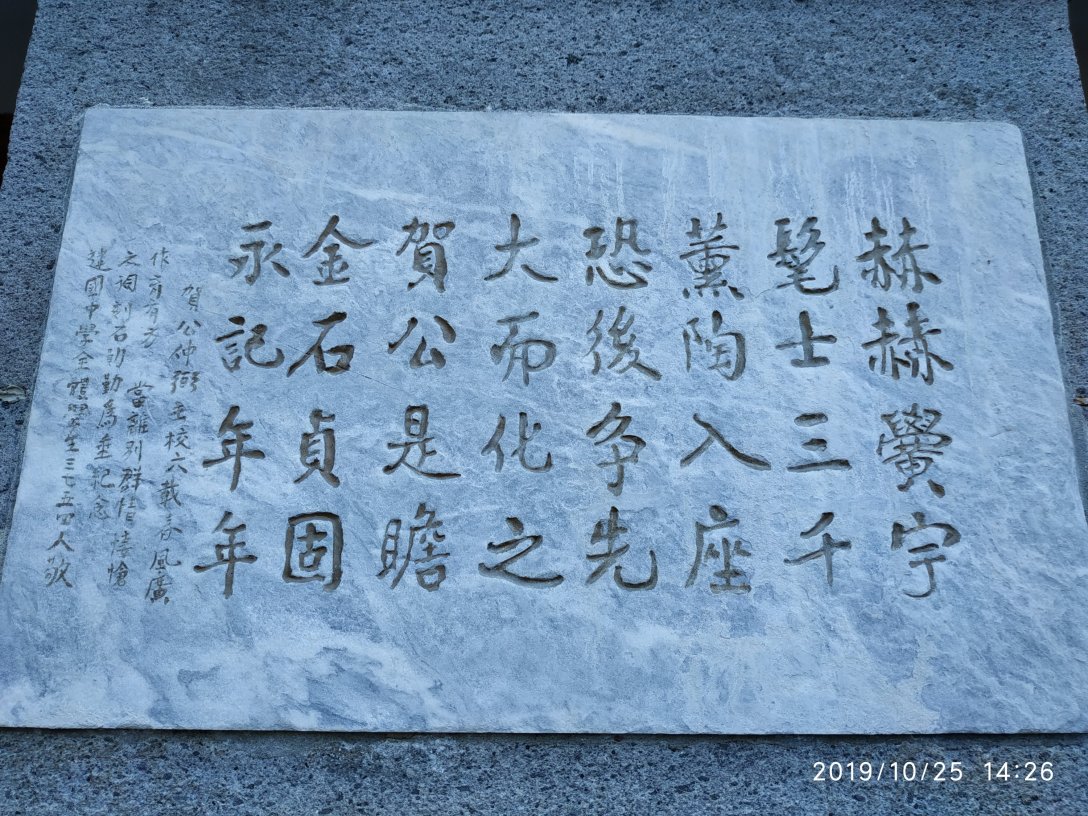 赫赫黌宇
髦士三千
薰陶入座
恐後争先
大而化之
賀公是瞻
金石貞固
永記年年
賀公仲弼在校六載春風廣
作育有方 當離別群情淒愴
之詞刻石 為垂記念
建國中學全體學生三七五四人敬
2019/10/25 14:26